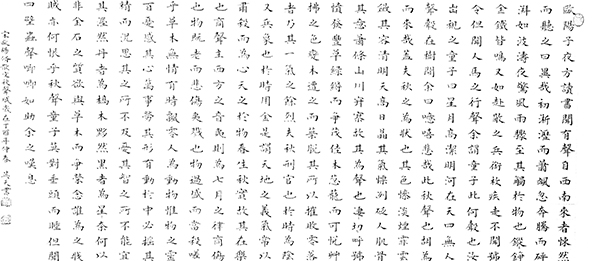 歐陽子夜方讀書聞有聲自西南來者悚然
而聽之曰異哉初淅瀝而蕭颯忽奔騰而砰
湃如波濤夜驚風雨驟至其觸於物也鏦錚
金鐵皆鳴又如赴敵之兵銜枚疾走不聞號
令但聞人馬之行聲余謂童子此何聲也汝
出視之童子曰星月高潔明河在天四無人
聲聲在樹間余曰噫嘻悲哉此秋聲也胡為
而來哉蓋夫秋之為狀也其色慘淡煙霏雲
斂其容清明天高日晶其氣慄冽砭人肌骨
其意蕭條山川寂寥故其為聲也淒切呼號
憤發豐草綠縟而爭茂佳木葱籠而可悅草
拂之色變木遭之而葉脫其所以摧敗零落
者乃其一氣之餘烈夫秋刑官也於時為陰
又兵象也於時用金是謂天地之義氣常以
肅殺而為心天之於物春生秋實故其在樂
也商聲主西方之音夷則為七月之律商傷
也物既老而悲傷夷戮也物過盛而當殺嗟
乎草木無情有時飄零人為動物惟物之靈
百憂感其心萬事勞其形有動於中必搖其
精而況思其力之所不及憂其智之所不能宜
其渥然丹者為槁木黟然黑者為星星奈何以
非金石之質欲與草木而爭榮念誰為之戕
賊亦何恨乎秋聲童子莫對垂頭而睡但聞
四壁蟲聲唧唧如助余之嘆息
宋歐陽脩秋聲賦歲在丁酉年仲春